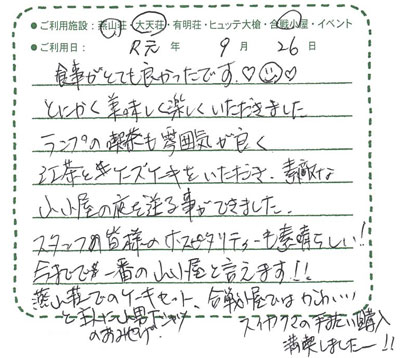 ●ご利用施設：燕山荘・大天荘・有明荘・ヒュッテ大槍・合戦小屋・イベント
●ご利用日： R元 年 9 月 26 日
食事がとても良かったです。♡☺♡
とにかく美味しく楽しくいただきました
ランプの喫茶も雰囲気が良く
紅茶と生チーズケーキをいただき、素敵な
山小屋の夜を送る事ができました。
スタッフの皆様のホスピタリティーも素晴らしい!!
今までで一番の山小屋と言えます!!
燕山荘でのケーキセット、合戦小屋ではかわいい
スイカクマの手ぬぐい購入
満喫しましたー!!